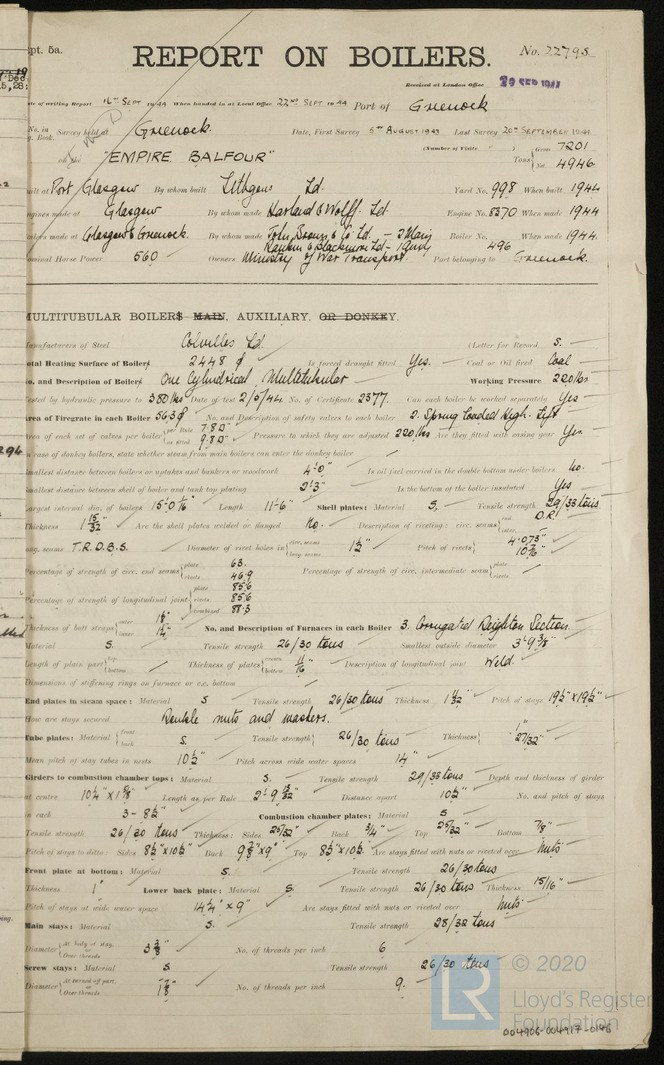 pt. 5a.
REPORT ON BOILERS.
No. 22795
Received at London Office 29 SEP 1944
te of writing Report 16TH SEPT 1944 When handed in at Local Office 22ND SEPT 1944 Port of Greenock
No. in Survey held at Greenock. Date, First Survey 5TH AUGUST 1943 Last Survey 20TH SEPTEMBER 1944
g. Book.
(Number of Visits )
on the "EMPIRE BALFOUR" Tons Gross 7201
Net 4946
uilt at Port Glasgow By whom built Lithgows Ld. Yard No. 998 When built 1944
ngines made at Glasgow By whom made Harland & Wolff. Ld. Engine No. 8370 When made 1944
oilers made at Glasgow & Greenock. By whom made John Brown & Co Ld. – 2 Main
Rankin & Blackmore Ld – 1 Aux Boiler No. 496 When made 1944.
ominal Horse Power 560 Owners Ministry of War Transport. Port belonging to Greenock.
MULTITUBULAR BOILERS MAIN, AUXILIARY, OR DONKEY.
Manufacturers of Steel Colvilles Ld. (Letter for Record S.
otal Heating Surface of Boilers 2448 Is forced draught fitted Yes. Coal or Oil fired Coal
No. and Description of Boilers One Cylindrical, Multitubular Working Pressure 220 lbs
Tested by hydraulic pressure to 380 lbs Date of test 2/5/44 No. of Certificate 2377. Can each boiler be worked separately Yes
Area of Firegrate in each Boiler 56.3 No. and Description of safety valves to each boiler 2. Spring loaded High-Lift
Area of each set of valves per boiler per Rule 7.8
as fitted 9.8 Pressure to which they are adjusted 220 lbs Are they fitted with easing gear Yes
n case of donkey boilers, state whether steam from main boilers can enter the donkey boiler
Smallest distance between boilers or uptakes and bunkers or woodwork 4'-0" Is oil fuel carried in the double bottom under boilers No.
Smallest distance between shell of boiler and tank top plating 2'-3" Is the bottom of the boiler insulated Yes
Largest internal dia. of boilers Length 11'-6" Shell plates: Material S. Tensile strength 29/33 tons
Thickness 1 15/32 Are the shell plates welded or flanged No. Description of riveting: circ. seams end D.R.
inter.
ong. seams T.R.D.B.S. Diameter of rivet holes in circ. seams
long. seams 1½" Pitch of rivets 4.073"
Percentage of strength of circ. end seams plate 63.
rivets 46.9 Percentage of strength of circ. intermediate seam plate
rivets
Percentage of strength of longitudinal joint plate 85.6
rivets 85.6
combined 88.3
Thickness of butt straps outer 1⅛"
inner 1¼" No. and Description of Furnaces in each Boiler 3. Corrugated Deighton Section.
Material S. Tensile strength 26/30 tons Smallest outside diameter 3'-9⅜"
Length of plain part top
bottom Thickness of plates crown
bottom 11/16" Description of longitudinal joint Weld.
Dimensions of stiffening rings on furnace or c.c. bottom
End plates in steam space: Material S Tensile strength 26/30 tons Thickness 1 1/32" Pitch of stays 19½" x 19½"
How are stays secured Double nuts and washers.
Tube plates: Material front
back S. Tensile strength 26/30 tons Thickness 1"
27/32"
Mean pitch of stay tubes in nests 10½" Pitch across wide water spaces 14"
Girders to combustion chamber tops: Material S. Tensile strength 29/33 tons Depth and thickness of girder
at centre 10¼" x 1⅝" Length as per Rule 2'-9 13/32" Distance apart 10½" No. and pitch of stays
in each 3 - 8½" Combustion chamber plates: Material S
Tensile strength 26/30 tons Thickness: Sides 25/32" Back 3/4" Top 25/32" Bottom 7/8"
Pitch of stays to ditto: Sides 8½" x 10½" Back 9⅜" x 9" Top 8½" x 10½" Are stays fitted with nuts or riveted over Nuts
Front plate at bottom: Material S. Tensile strength 26/30 tons
Thickness 1" Lower back plate: Material S. Tensile strength 26/30 tons Thickness 15/16"
Pitch of stays at wide water space 14¼" x 9" Are stays fitted with nuts or riveted over Nuts
Main stays: Material S. Tensile strength 28/32 tons
Diameter At body of stay,
or
Over threads 3⅜" No. of threads per inch 6
Screw stays: Material S Tensile strength 26/30 tons
Diameter At turned off part,
or
Over threads 1⅞" No. of threads per inch 9.
© 2020
LR Lloyd's Register
Foundation
004906-004917-0146